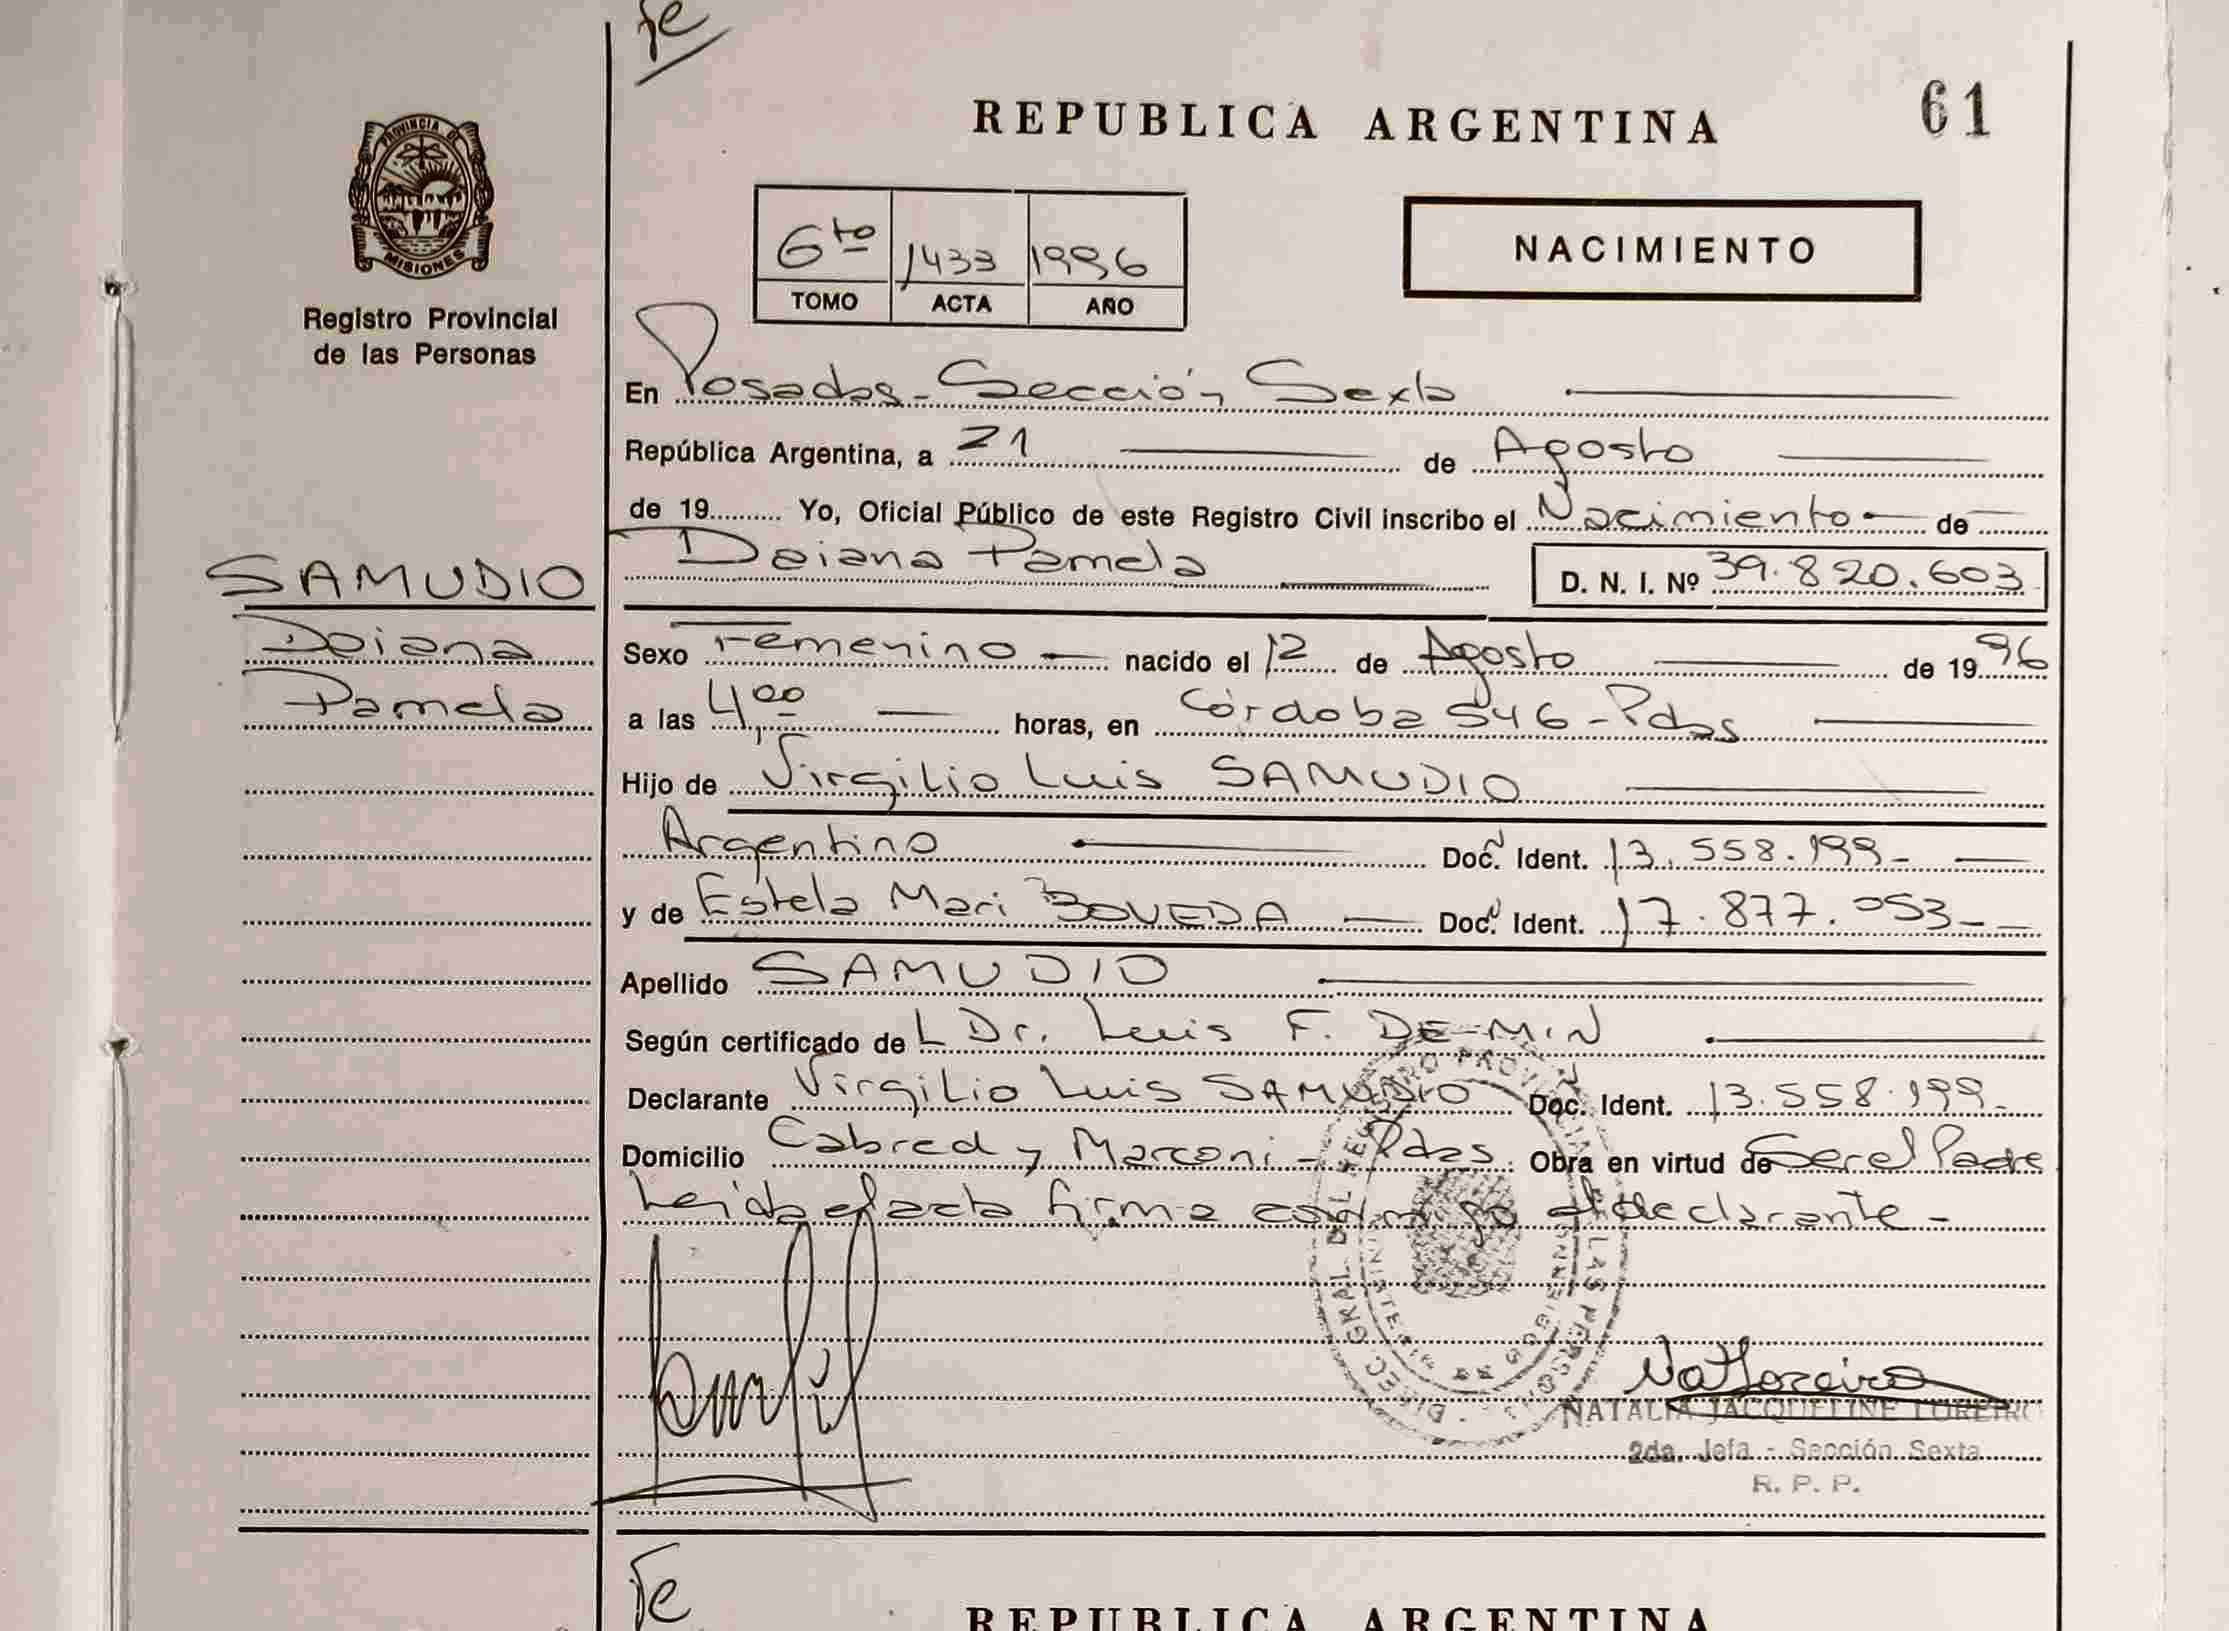 fe
REPUBLICA ARGENTINA
61
PROVINCIA DE
MISIONES
Registro Provincial
de las Personas
6to 1433 1996
TOMO ACTA AÑO
NACIMIENTO
En Posadas - Sección Sexta
República Argentina, a 21 de Agosto
de 19 Yo, Oficial Público de este Registro Civil inscribo el Nacimiento de
Daiana Pamela
D. N. I. Nº 39.820.603
SAMUDIO
Daiana
Pamela
Sexo Femenino nacido el 12 de Agosto de 1996
a las 4,00 horas, en Córdoba 546 - Pdas
Hijo de Virgilio Luis SAMUDIO
Argentino Doc. Ident. 13.558.199
y de Estela Mari BOVEDA Doc. Ident. 17.877.053
Apellido SAMUDIO
Según certificado de L Dr. Luis F. DE-MIN
Declarante Virgilio Luis SAMUDIO Doc. Ident. 13.558.199
Domicilio Cabred y Marconi - Pdas. Obra en virtud de Ser el Padre
Leida el acta firma conmigo el declarante -
DIREC. GRAL. DEL REGISTRO PROVINCIAL DE LAS PERSONAS
NATALIA JACQUELINE LOREIRO
2da. Jefa - Sección Sexta
R. P. P.
fe
REPUBLICA ARGENTINA